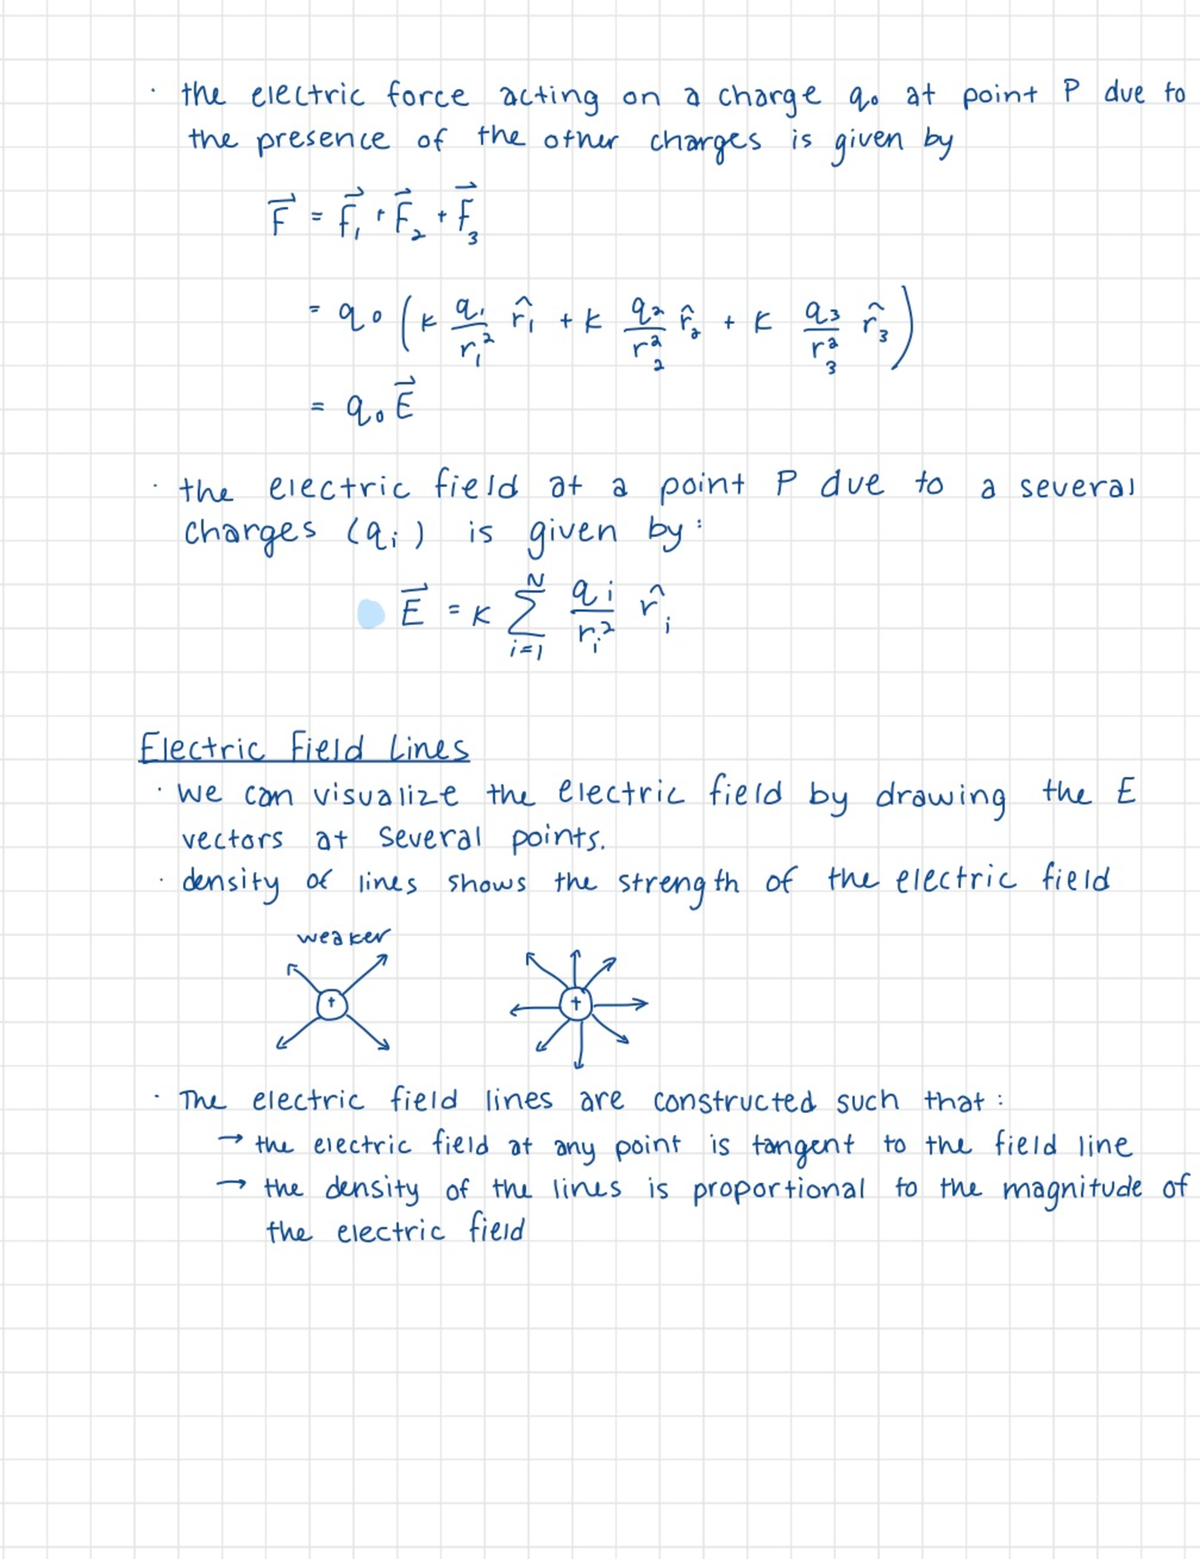 · the electric force acting on a charge q₀ at point P due to
the presence of the other charges is given by
F⃗ = F⃗₁ + F⃗₂ + F⃗₃
= q₀ (k q₁/r₁² r̂₁ + k q₂/r₂² r̂₂ + k q₃/r₃² r̂₃)
= q₀E⃗
· the electric field at a point P due to a several
charges (qᵢ) is given by:
E⃗ = k Σᵢ₌₁ᴺ qᵢ/rᵢ² r̂ᵢ
Electric Field Lines
· We can visualize the electric field by drawing the E
vectors at several points.
· density of lines shows the strength of the electric field
weaker
+ +
· The electric field lines are constructed such that:
→ the electric field at any point is tangent to the field line
→ the density of the lines is proportional to the magnitude of
the electric field